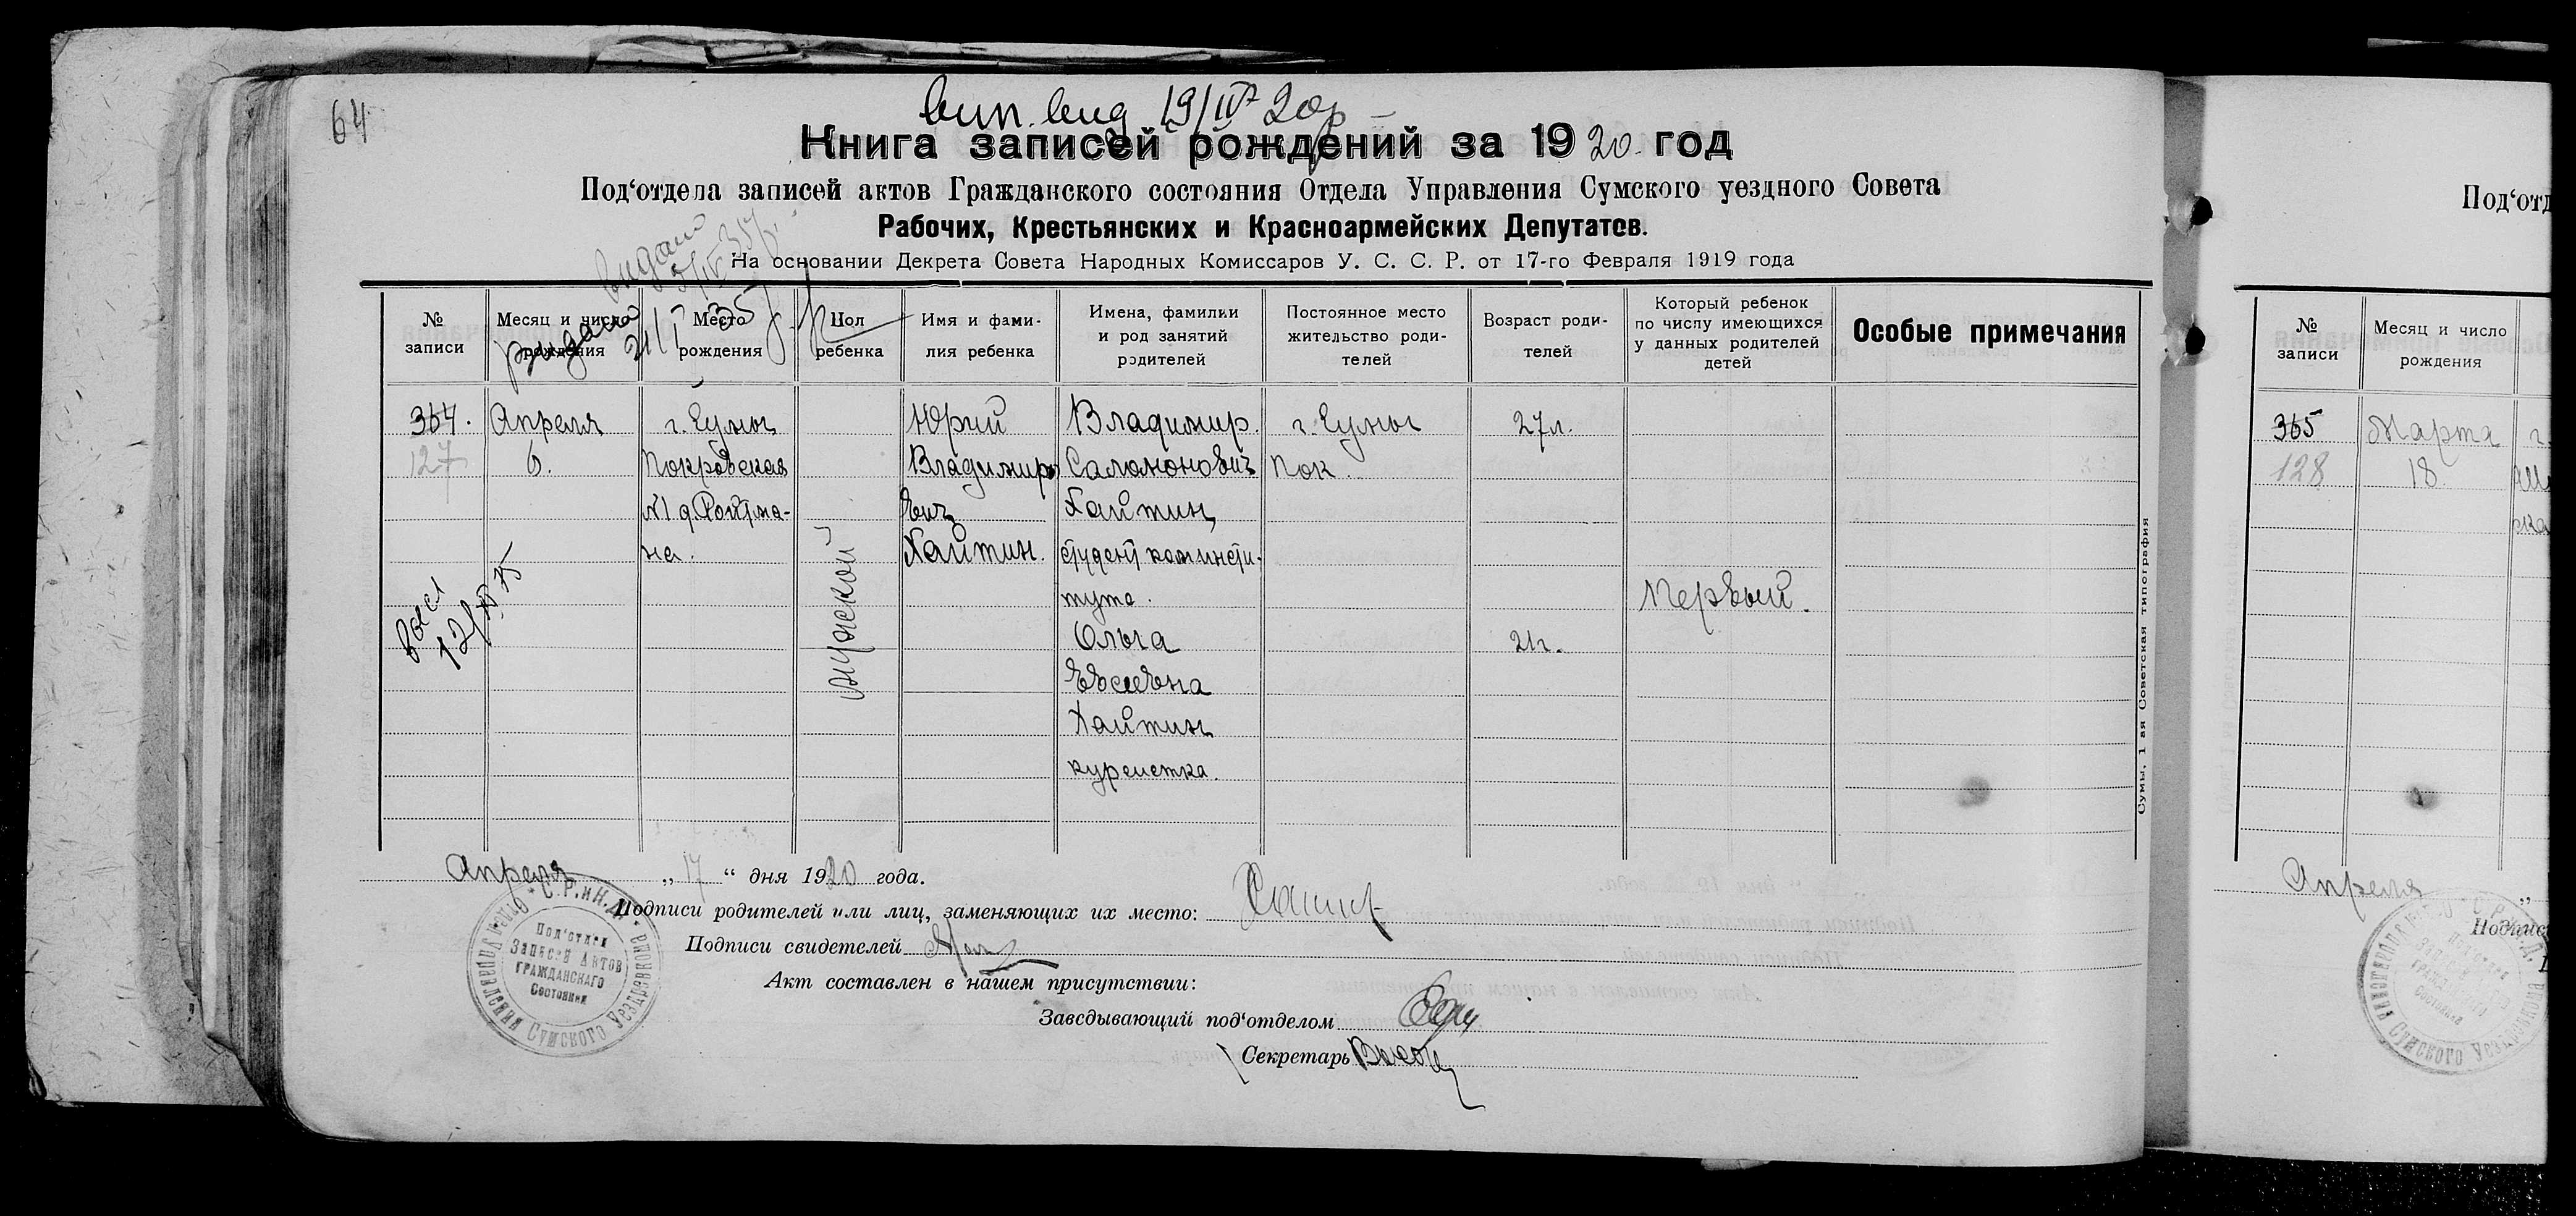 64
вип. вид 19/IV 20р
Книга записей рождений за 1920 год
Под‘отдела записей актов Гражданского состояния Отдела Управления Сумского уездного Совета
Рабочих, Крестьянских и Красноармейских Депутатов.
На основании Декрета Совета Народных Комиссаров У. С. С. Р. от 17-го Февраля 1919 года
видано
видано 21/I 35
№ записи
Месяц и число рождения
Место рождения
Пол ребенка
Имя и фами-
лия ребенка
Имена, фамилии
и род занятий
родителей
Постоянное место
жительство роди-
телей
Возраст роди-
телей
Который ребенок
по числу имеющихся
у данных родителей
детей
Особые примечания
364.
127
Апреля
6.
г. Сумы
Покровская
№1 д. Ройтма-
на.
мужской
Юрий
Владимиро
вич
Хайтин.
Владимир
Саломонович
Хайтин,
студент коминсти-
тута.
Ольга
Евсеевна
Хайтин
курсистка.
г. Сумы
Пок.
27л.
21г.
Первый.
12/XI 75
Апреля „17“ дня 1920 года.
Подписи родителей или лиц, заменяющих их место:
Подписи свидетелей
Акт составлен в нашем присутствии:
Заведывающий под‘отделом
Секретарь
Под‘отдел
Записей Актов
Гражданскаго
Состояния
Управления Сумского Уездревкома
С.Р. и К.Д.
Сумы, 1 ая Советская типография
Под‘отд
№ записи
Месяц и число
рождения
365
128
Марта
18.
г.
Апреля „
Подпис